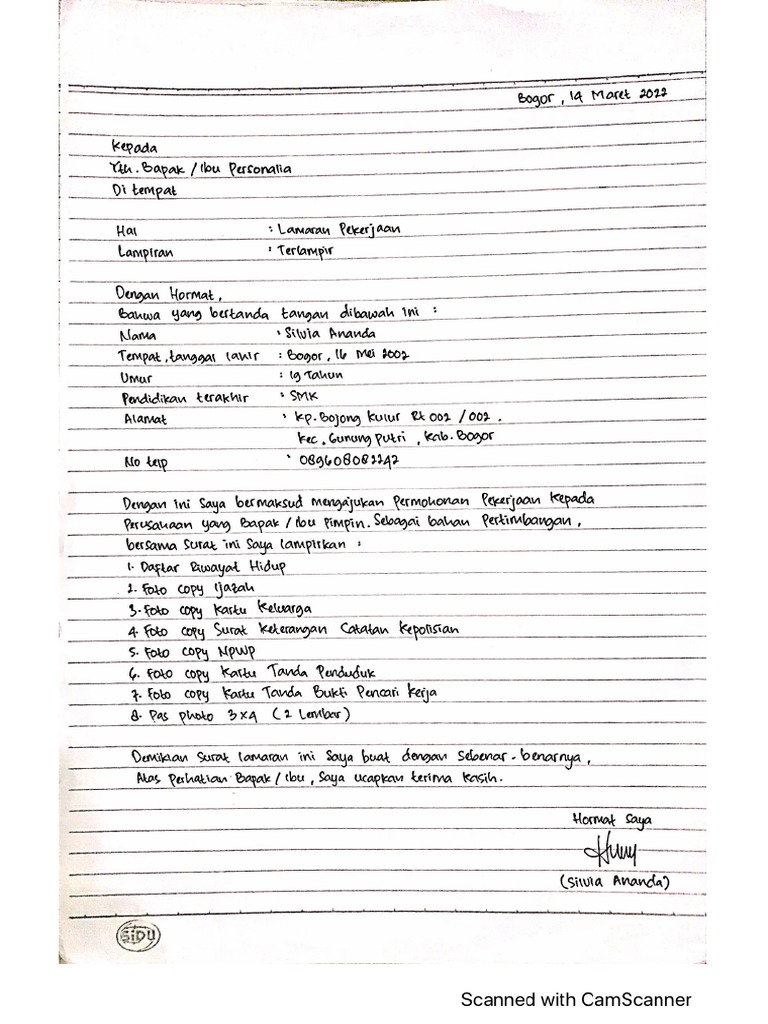 Bogor, 14 Maret 2022
Kepada
Yth. Bapak / Ibu Personalia
Di tempat
Hal : Lamaran Pekerjaan
Lampiran : Terlampir
Dengan Hormat,
Bahwa yang bertanda tangan dibawah ini :
Nama : Silvia Ananda
Tempat, tanggal lahir : Bogor, 16 Mei 2002
Umur : 19 Tahun
Pendidikan terakhir : SMK
Alamat : Kp. Bojong Kulur Rt 002 / 002 .
Kec. Gunung Putri , Kab. Bogor
No telp : 089608082242
Dengan ini Saya bermaksud mengajukan Permohonan Pekerjaan Kepada
Perusahaan yang Bapak / Ibu Pimpin. Sebagai bahan Pertimbangan,
bersama Surat ini Saya lampirkan :
1. Daftar Riwayat Hidup
2. Foto copy Ijazah
3. Foto copy Kartu Keluarga
4. Foto copy Surat Keterangan Catatan Kepolisian
5. Foto copy NPWP
6. Foto copy Kartu Tanda Penduduk
7. Foto copy Kartu Tanda Bukti Pencari Kerja
8. Pas photo 3x4 (2 Lembar)
Demikian Surat lamaran ini Saya buat dengan Sebenar-benarnya,
Atas Perhatian Bapak / Ibu, Saya ucapkan terima Kasih.
Hormat Saya
(Silvia Ananda)
SiDU
Scanned with CamScanner